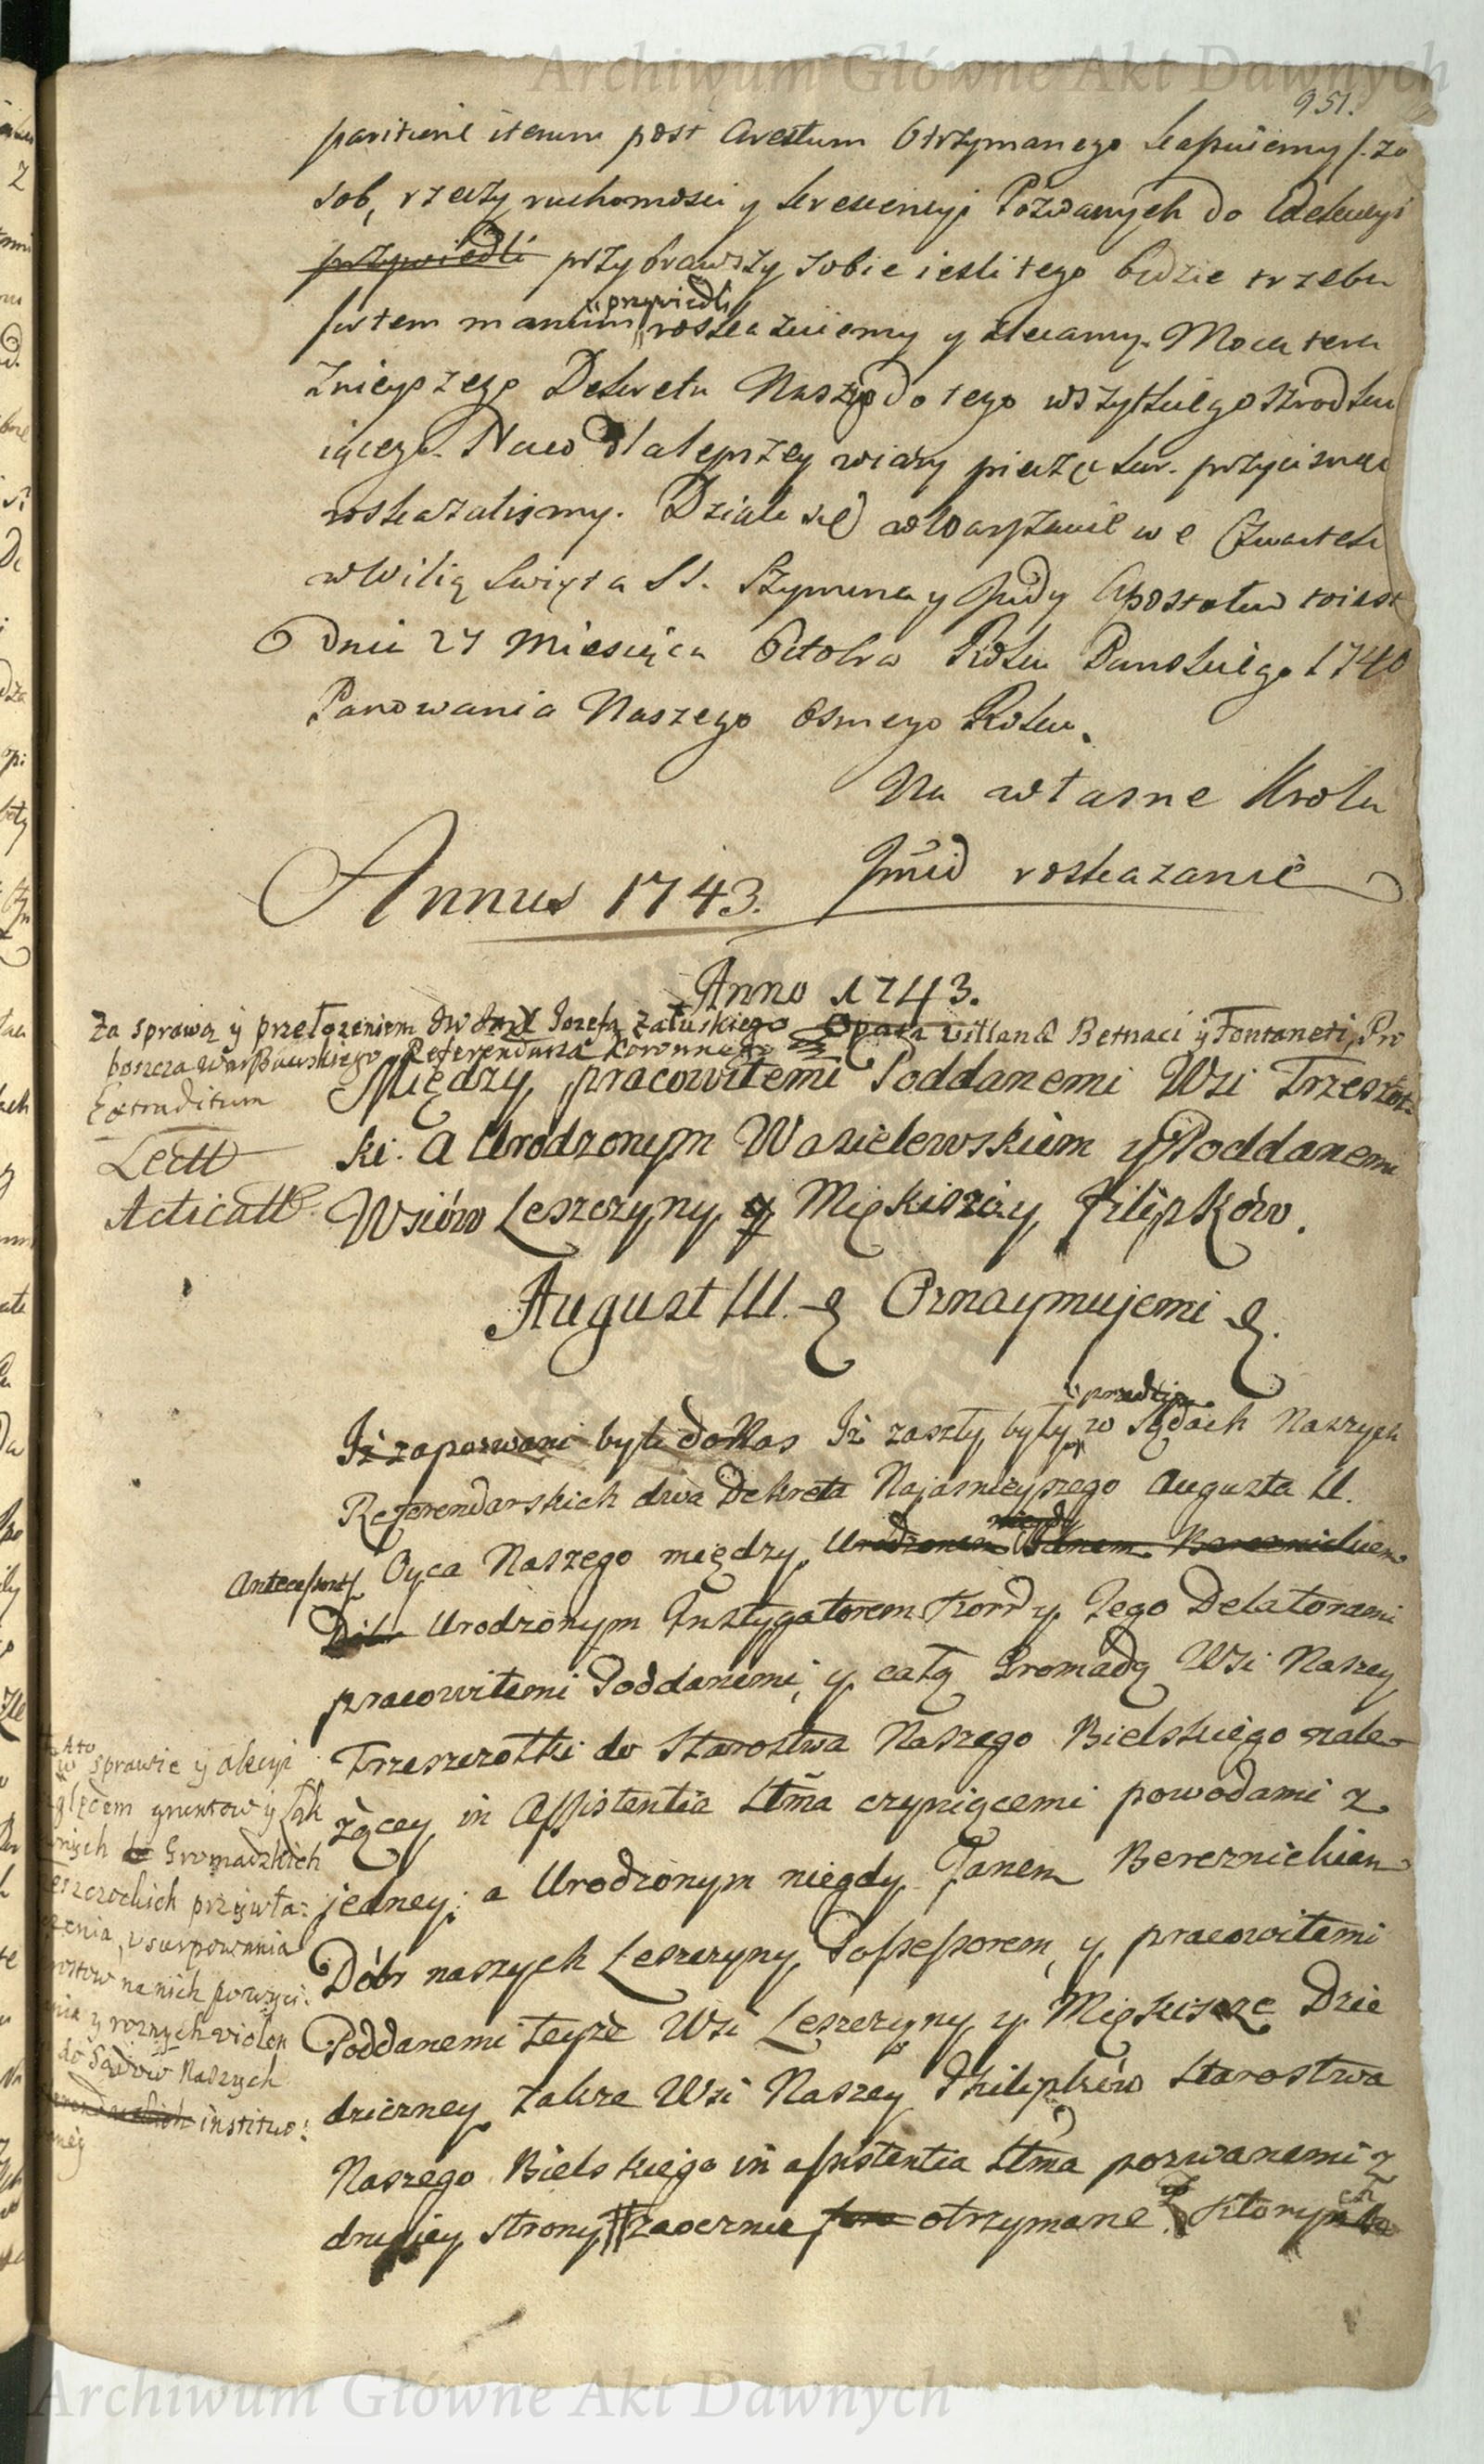 Archiwum Główne Akt Dawnych
951.
iterum post Arestum Otrzymanego
sob, rzeczy ruchomosci y krescencyi Pozwanych do Exekucyi
przywiedli przybrawszy sobie iesli tego będzie trzeba
przywiedli
manum roskazuiemy y zlecamy. Mocą tera
znieyszego Dekretu Naszego do tego wszytkiego
iącego. Na co dla lepszey wiary pieczęć kor. przycisnąć
roskazalismy. Działo się w Warszawie we Czwartek
w Wilią Swięta SS. Szymona y Judy Apostołow to iest
Dnia 27 Miesiąca Oktobra Roku Panskiego 1740
Panowania Naszego Osmego Roku.
Na własne Krola
Jmći roskazanie
Annus 1743.
Anno 1743.
Za sprawą y przełozeniem JW Jozefa Załuskiego Opata Villani Bernaci y Fontaneti, Pro
boszcza Warszawskiego Referendarza Koronnego
Extraditum
Lectt
Acticatt
Między pracowitemi Poddanemi Wsi Trzeszczot:
ki. A Urodzonym Wasielewskim y Poddanemi
Wsiów Leszczyny y Miękiszy Filipków.
August III. Oznaymujemi
przedtym
Iż zapozwani byli do Nas Iż zaszły były w Sądach Naszych
Referendarskich dwa Dekreta Najasnieyszego Augusta II.
Antecess
Oyca Naszego między Urodzonem niegdy Janem Bereznickiem
Urodzonym Instygatorem Korr y Jego Delatorami
pracowitemi Poddanemi, y całą Gromadą Wsi Naszey
Trzeszczotki do Starostwa Naszego Bielskiego nale-
żącey in Assistentia Sttma czyniącemi powodami z
jedney; a Urodzonym niegdy Janem Bereznickiem
Dóbr naszych Leszczyny Possessorem, y pracowitemi
Poddanemi teyże Wsi Leszczyny y Miękisze Dzie
dziczney także Wsi Naszey Philipków Starostwa
Naszego Bielskiego in assistentia Sttma pozwanemi z
drugiey strony zaocznie otrzymane. Z których
sprawie y akcyi
względem gruntow y łąk
Gromadzkich
Trzeszczockich przywła:
szczenia, usurpowania
na nich
y roznych violen
do Sądow Naszych
Referendarskich instituo:
Archiwum Główne Akt Dawnych